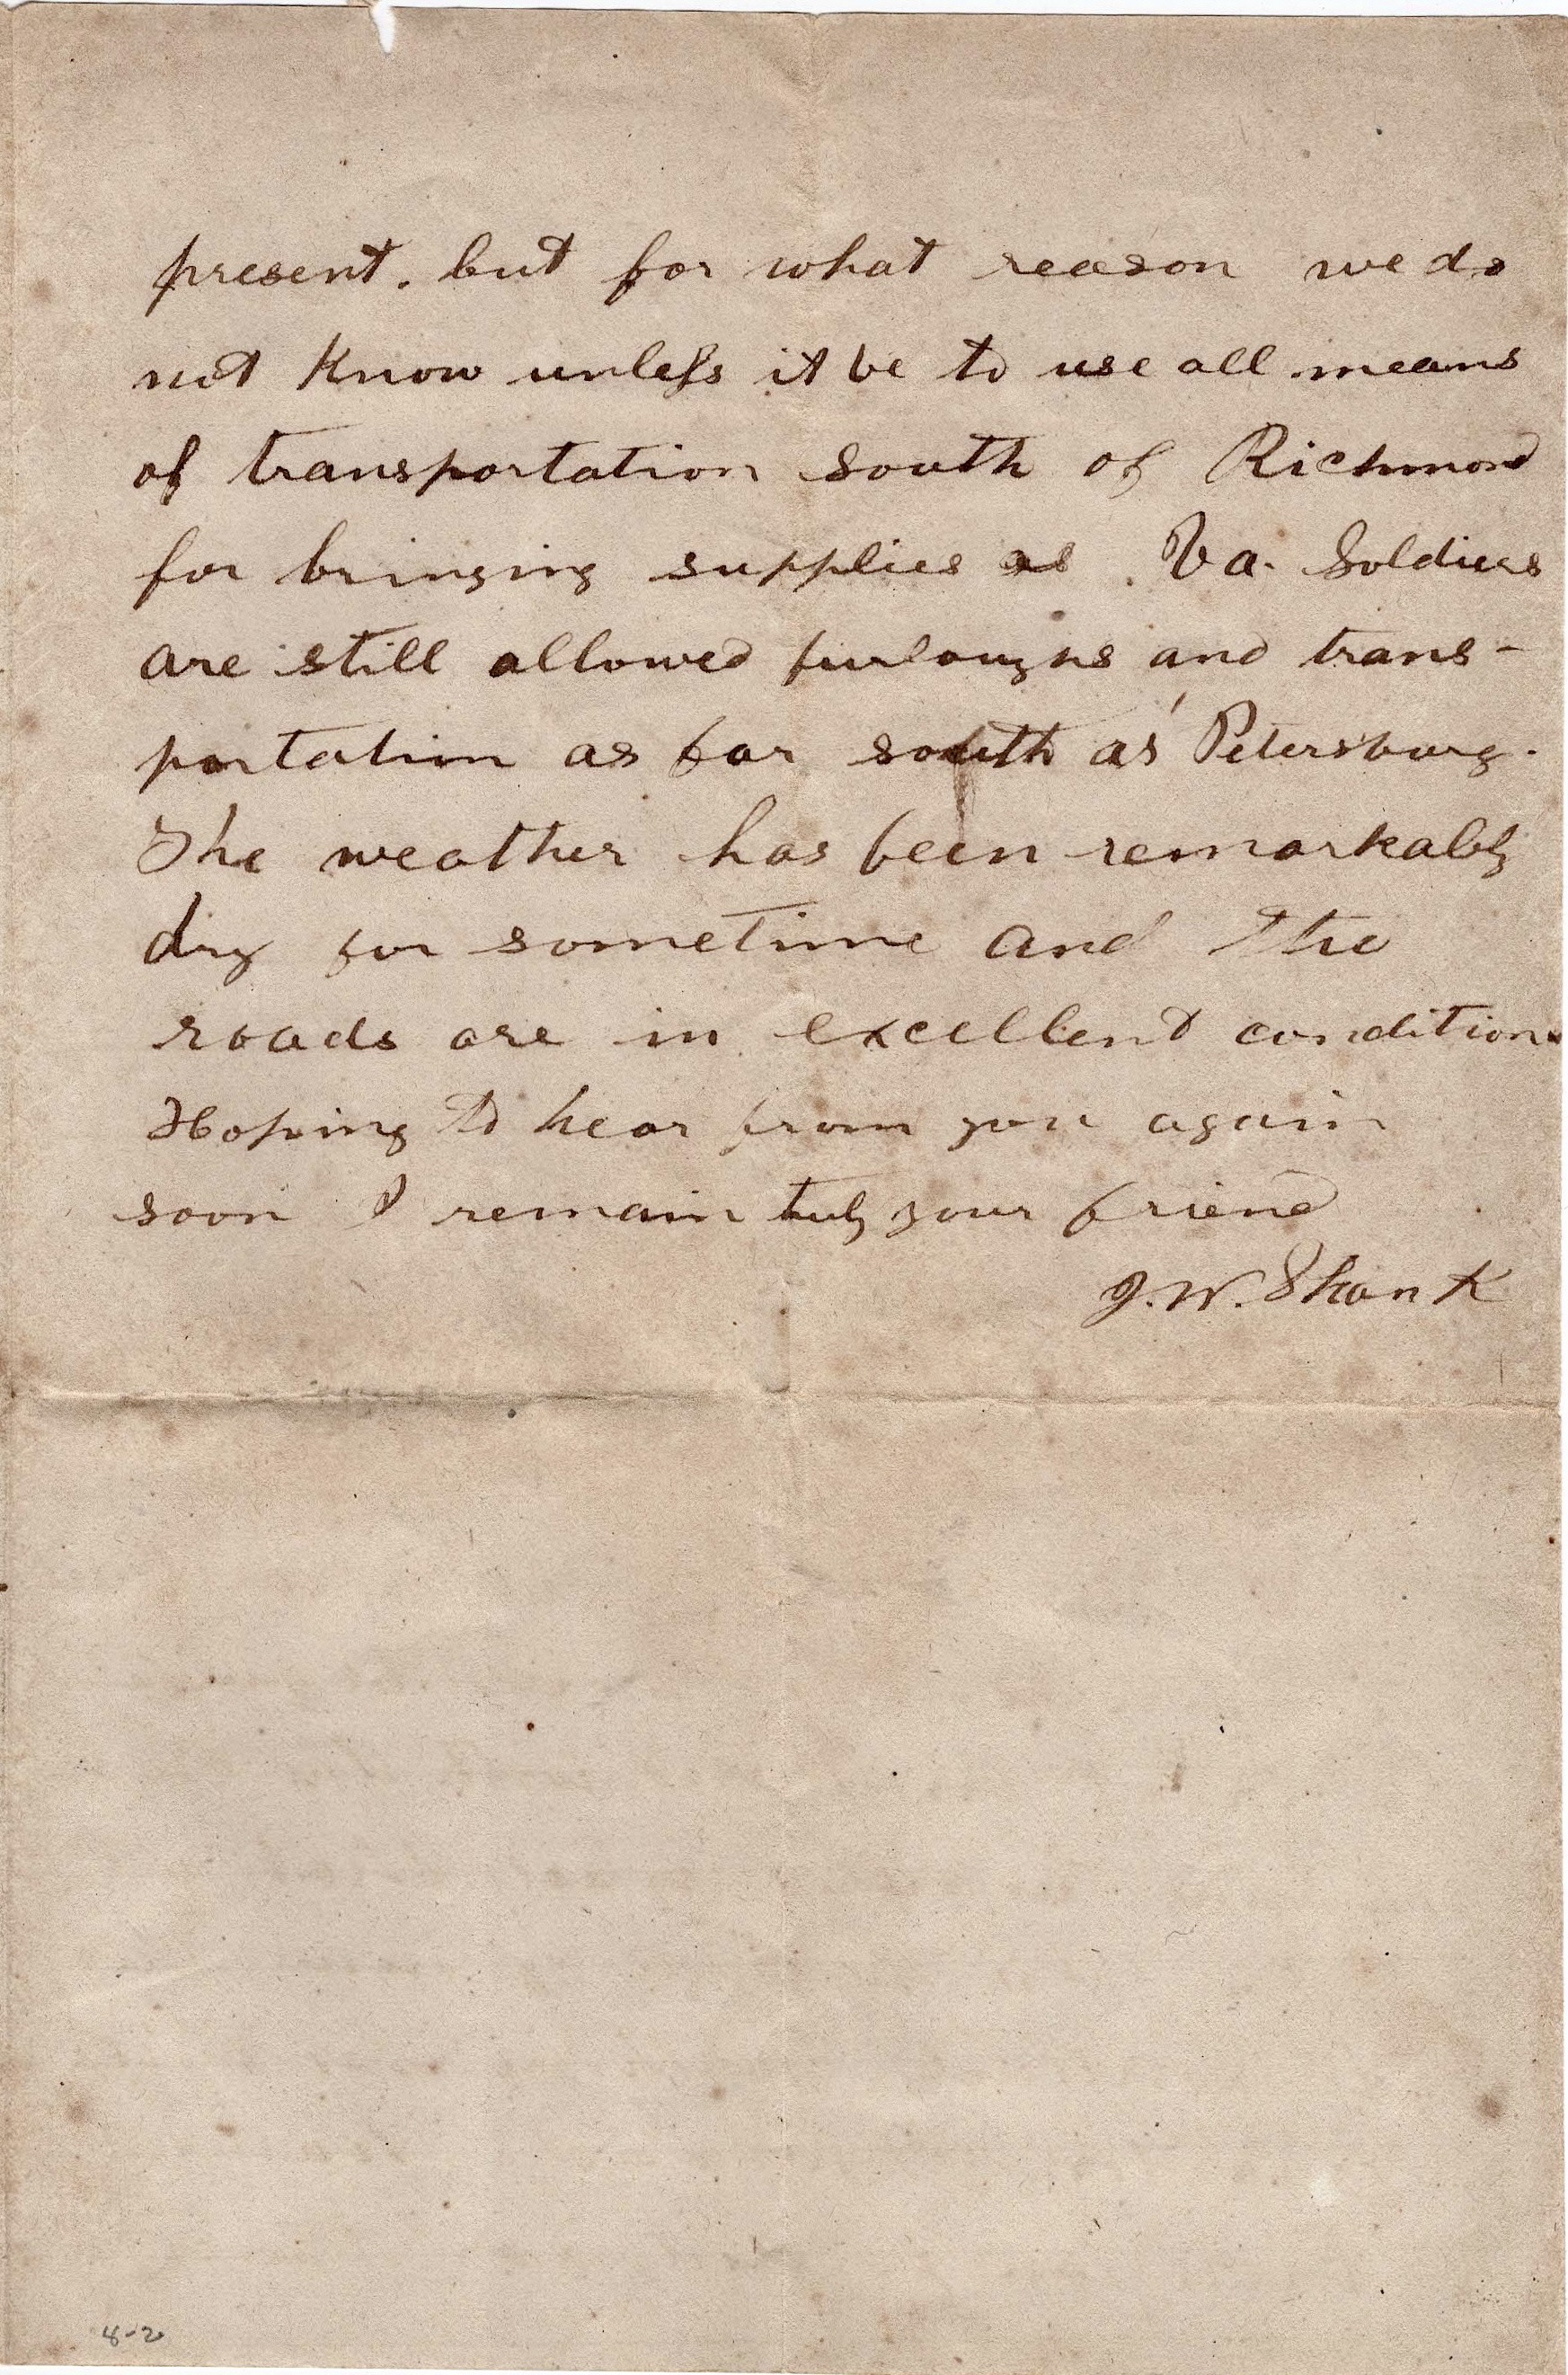 present. but for what reason we do
not know unless it be to use all means
of transportation south of Richmond
for bringing supplies as Va. Soldiers
are still allowed furloughs and trans-
portation as far south as Petersburg.
The weather has been remarkably
dry for sometime and the
roads are in excellent condition.
Hoping to hear from you again
soon I remain truly your friend
J. W. Shank
8-2